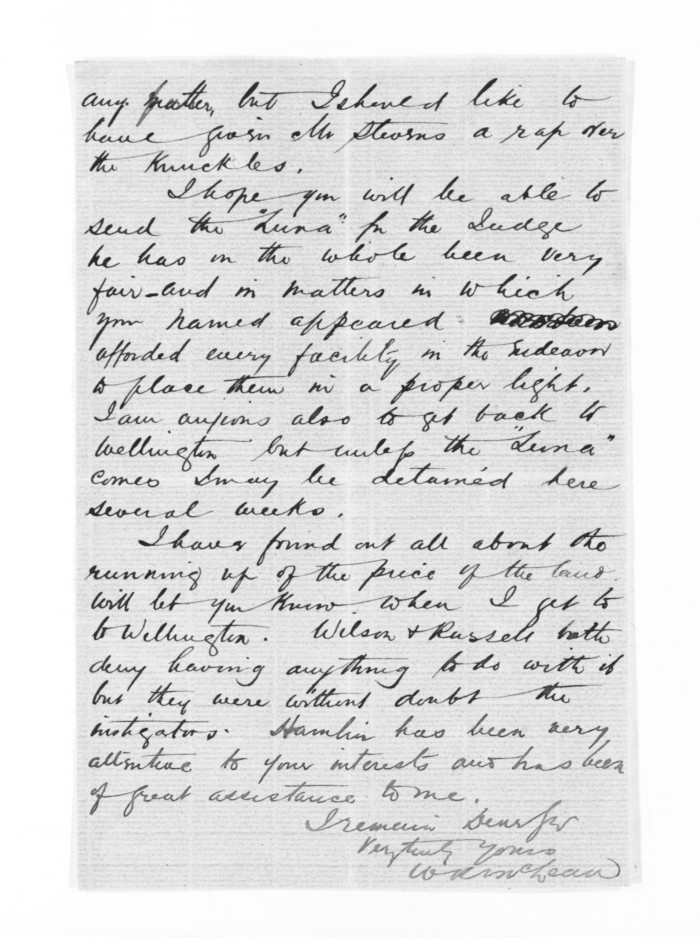 any matter, but I should like to
have given Mr Stevens a rap over
the Knuckles.
I hope you will be able to
send the "Luna" for the Judge
he has on the whole been very
fair - and in matters in which
your named appeared
afforded every facility in the Endeavor
to place them in a proper light.
I am anxious also to get back to
Wellington but unless the "Luna"
comes I may be detained here
several weeks.
I have found out all about the
running up of the price of the land.
Will let you Know when I get to
to Wellington. Wilson & Russell both
deny having anything to do with it
but they were without doubt the
instigators. Hamlin has been very
attentive to your interests and has been
of great assistance to me.
I remain Dear Sir
Very truly Yours
McLean